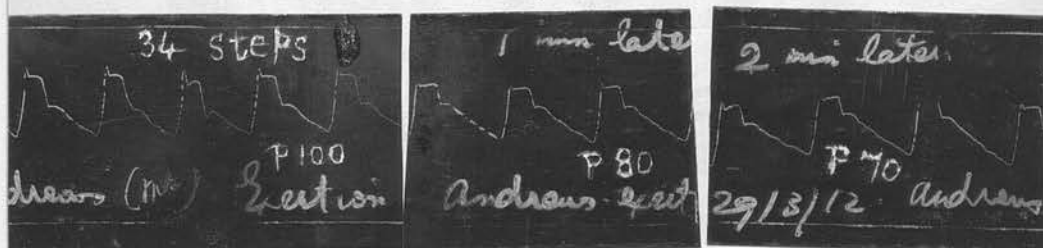 34 steps
P 100
drews (Mr) Exertion
1 min late
P 80
Andrews exert
2 min later
P 70
29/3/12 Andrews